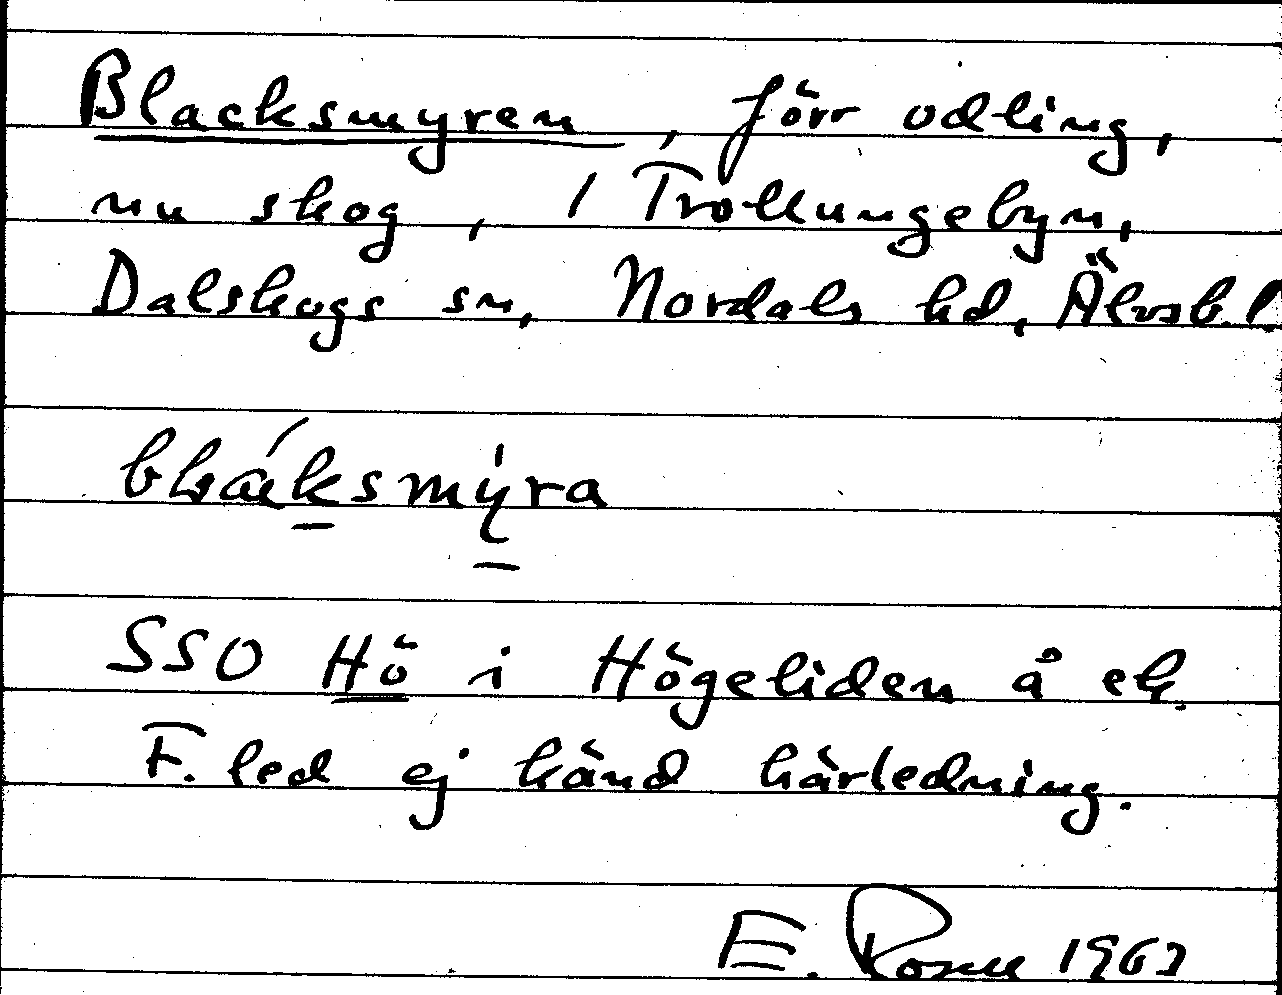 Blacksmyren, förr odling,
nu skog, i Trollungebyn,
Dalskogs sn, Nordals hd, Älvsb. l.
SSO Hö i Högeliden å ek.
F. led ej känd härledning.
E. 1963